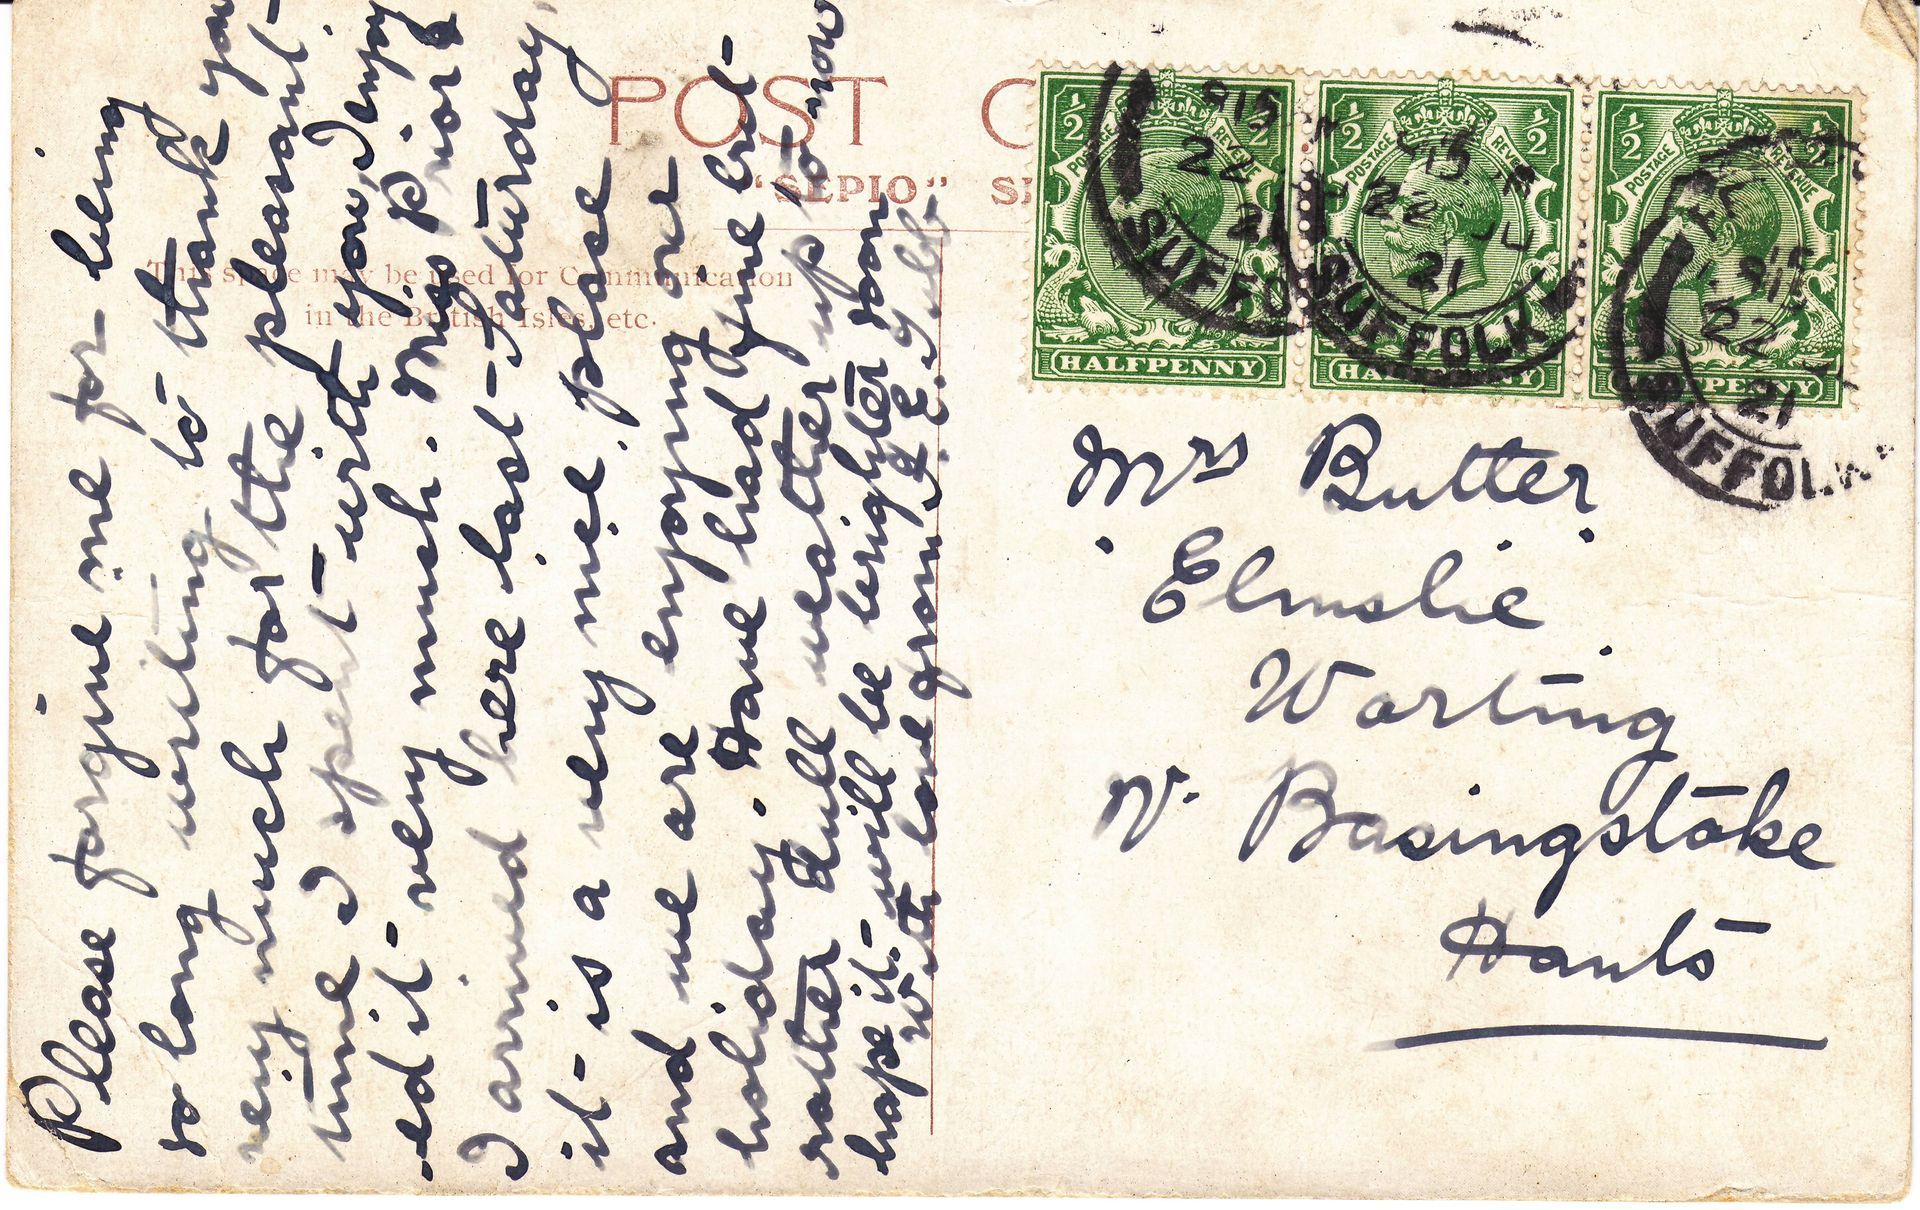 Please forgive me for being
so long writing to thank you
very much for the pleasant
time I spent with you, I enjoy
-ed it very much. Miss Prior &
I arrived here last Saturday,
it is a very nice place
and we are enjoying our
holiday. Have had fine but
rather dull weather up to now
hope it will be brighter soon
With love from
POST C
"SEPIO" S
This space may be used for Communication
in the British Isles, etc.
½ ½ ½ ½ ½ ½
POSTAGE REVENUE POSTAGE REVENUE
HALFPENNY HALFPENNY HALFPENNY
22 21
SUFFOLK
22 21
SUFFOLK
22 21
SUFFOLK
Mrs Butter
Elmslie
Worting
Nr. Basingstoke
Hants